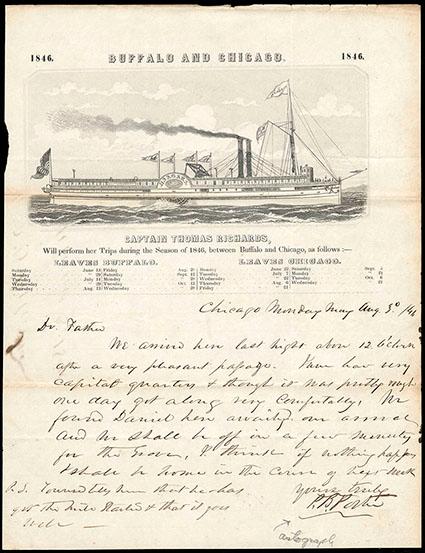 1846. BUFFALO AND CHICAGO. 1846.
NIAGARA
CAPTAIN THOMAS RICHARDS,
Will perform her Trips during the Season of 1846, between Buffalo and Chicago, as follows :—
LEAVES BUFFALO. LEAVES CHICAGO.
Saturday June Friday Aug. Monday June Saturday Sept.
Monday Saturday Sept. Tuesday July Monday
Tuesday July Monday Wednesday Tuesday Oct.
Wednesday Tuesday Oct. Thursday Aug. Wednesday
Thursday Aug. Wednesday Friday
Chicago Monday Aug 3d /46
Dr. Father
We arrived here last night about 12 O'clock
after a very pleasant passage. Have had very
capital quarters & though it was pretty rough
one day got along very comfortably. We
found Daniel here awaiting our arrival
and we shall be off in a few minutes
for the Grove, & if nothing happens
I shall be home in the of next week
P.S. has Yours truly
got the & that it goes
well —
autograph